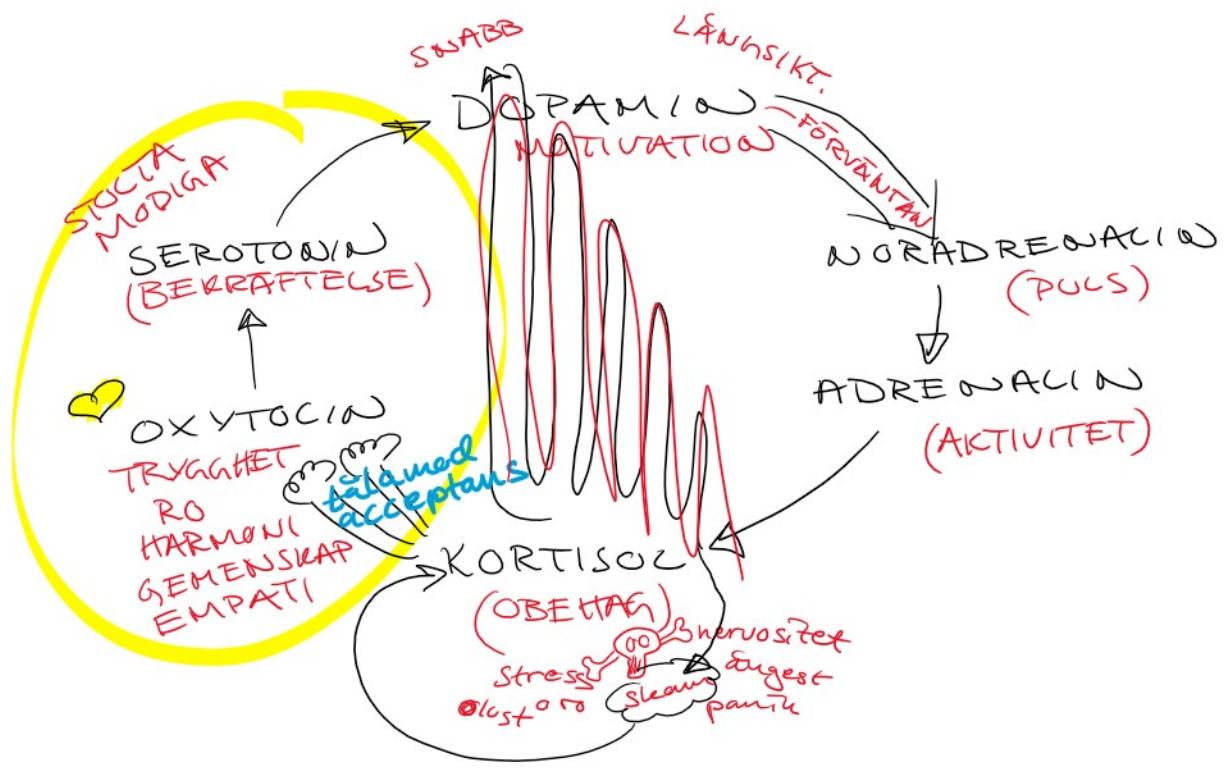 SNABB
LÅNGSIKT.
DOPAMIN
MOTIVATION
FÖRVÄNTAN
STOLTA
MODIGA
SEROTONIN
(BEKRÄFTELSE)
NORADRENALIN
(PULS)
ADRENALIN
(AKTIVITET)
OXYTOCIN
TRYGGHET
RO
HARMONI
GEMENSKAP
EMPATI
tålamod
acceptans
KORTISOL
(OBEHAG)
stress
olust oro
skam
nervositet
ångest
panik